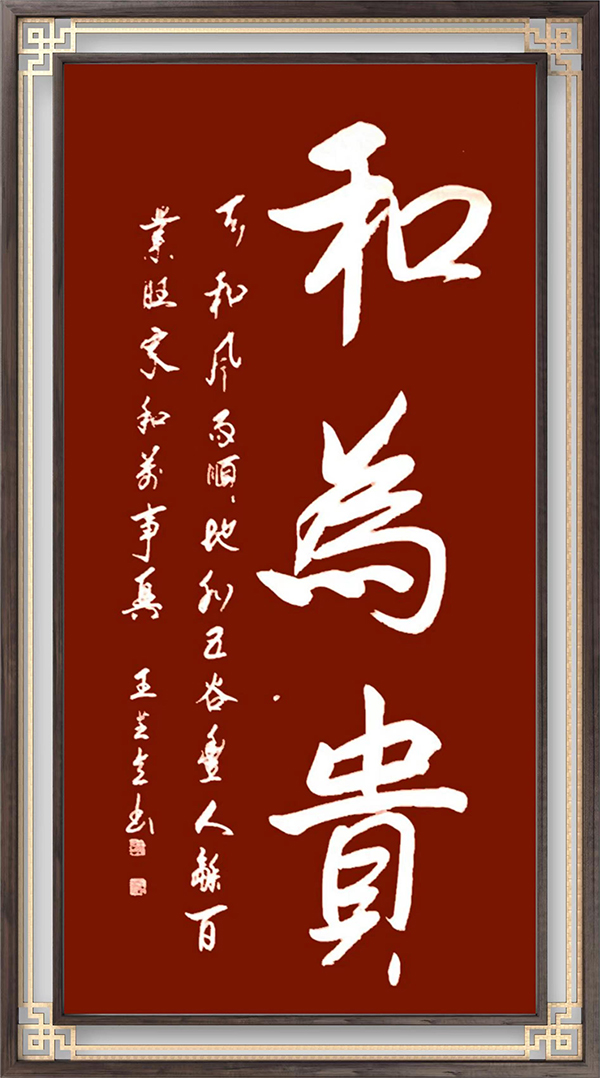 和為貴
天和風雨順地和五谷豐人龢百
業旺家和萬事興 王芝书